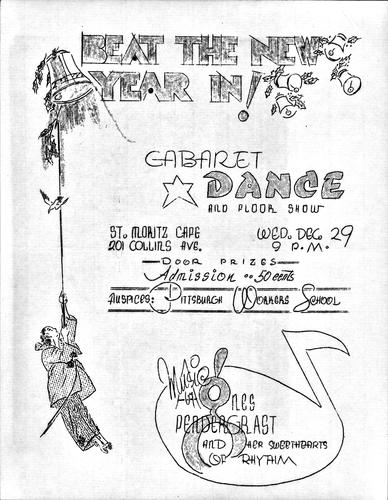 BEAT THE NEW
YEAR IN!
CABARET
DANCE
AND FLOOR SHOW
ST. MORITZ CAFE
201 COLLINS AVE.
WED. DEC. 29
9 P.M.
DOOR PRIZES
Admission .. 50 cents
AUSPICES: PITTSBURGH WORKERS SCHOOL
Music
PENDERGRAST
AND HER SWEETHEARTS
OF RHYTHM